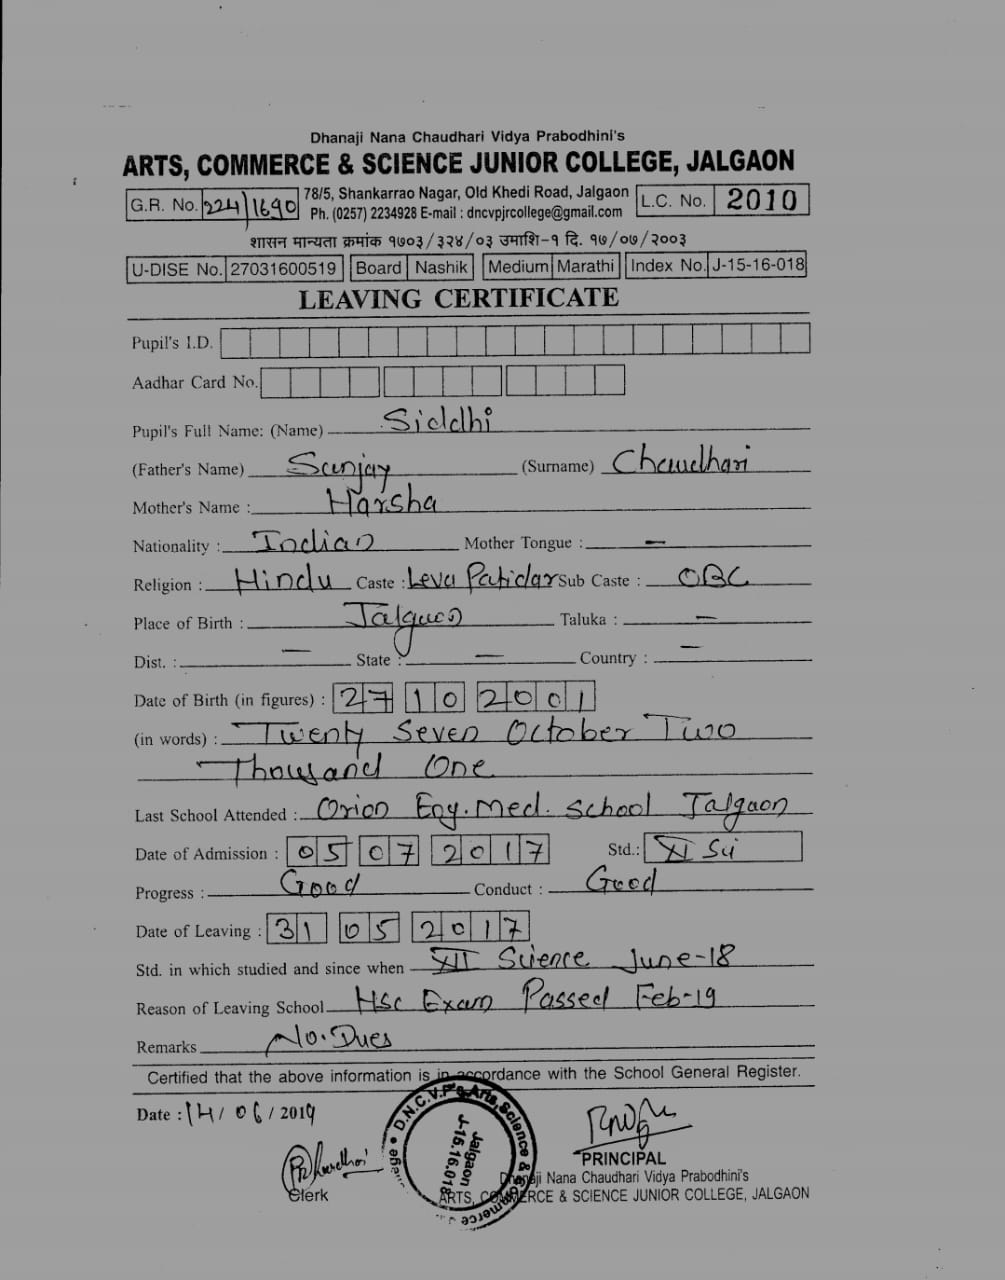 Dhanaji Nana Chaudhari Vidya Prabodhini's
ARTS, COMMERCE & SCIENCE JUNIOR COLLEGE, JALGAON
G.R. No. 224/1690 78/5, Shankarrao Nagar, Old Khedi Road, Jalgaon L.C. No. 2010
Ph. (0257) 2234928 E-mail : dncvpjrcollege@gmail.com
शासन मान्यता क्रमांक १७०३/३२४/०३ उमाशि-१ दि. १७/०७/२००३
U-DISE No. 27031600519 Board Nashik Medium Marathi Index No. J-15-16-018
LEAVING CERTIFICATE
Pupil's I.D.
Aadhar Card No.
Pupil's Full Name: (Name) Siddhi
(Father's Name) Sanjay (Surname) Chaudhari
Mother's Name : Harsha
Nationality : Indian Mother Tongue : —
Religion : Hindu Caste : Leva Patidar Sub Caste : OBC
Place of Birth : Jalgaon Taluka : —
Dist. : — State : — Country : —
Date of Birth (in figures) : 27 10 2001
(in words) : Twenty Seven October Two
Thousand One
Last School Attended : Orion Eng. Med. School Jalgaon
Date of Admission : 05 07 2017 Std.: XI Sci
Progress : Good Conduct : Good
Date of Leaving : 31 05 2017
Std. in which studied and since when XII Science June-18
Reason of Leaving School HSC Exam Passed Feb-19
Remarks No. Dues
Certified that the above information is in accordance with the School General Register.
Date : 14/06/2019
D.N.C.V.P's Arts, Science & Commerce
Jalgaon
J-15.16.018
Clerk
PRINCIPAL
Dhanaji Nana Chaudhari Vidya Prabodhini's
ARTS, COMMERCE & SCIENCE JUNIOR COLLEGE, JALGAON